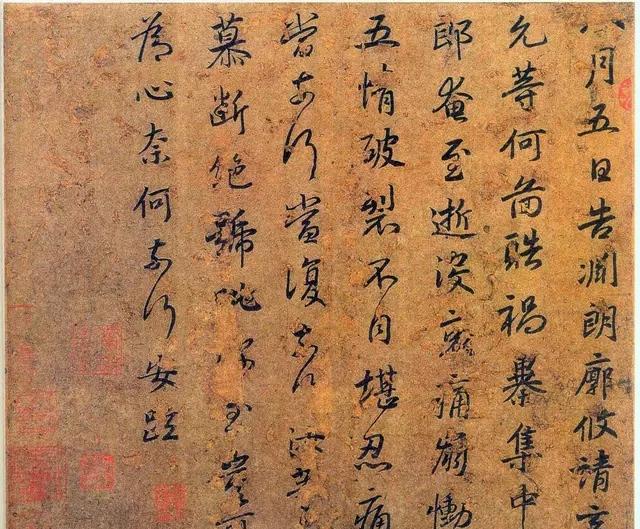 八月五日告淵朗廓攸靖玄
允等何啚酷禍暴集中
郎奄至逝沒哀痛崩慟
五情破裂不自堪忍痛
當奈何當復奈何汝等
慕斷絕號咷深至豈可
為心奈何奈何安疏